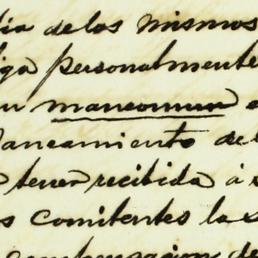 de los mismos
personalmente
mancomun
saneamiento de
tener recibida á s
s comitentes la s